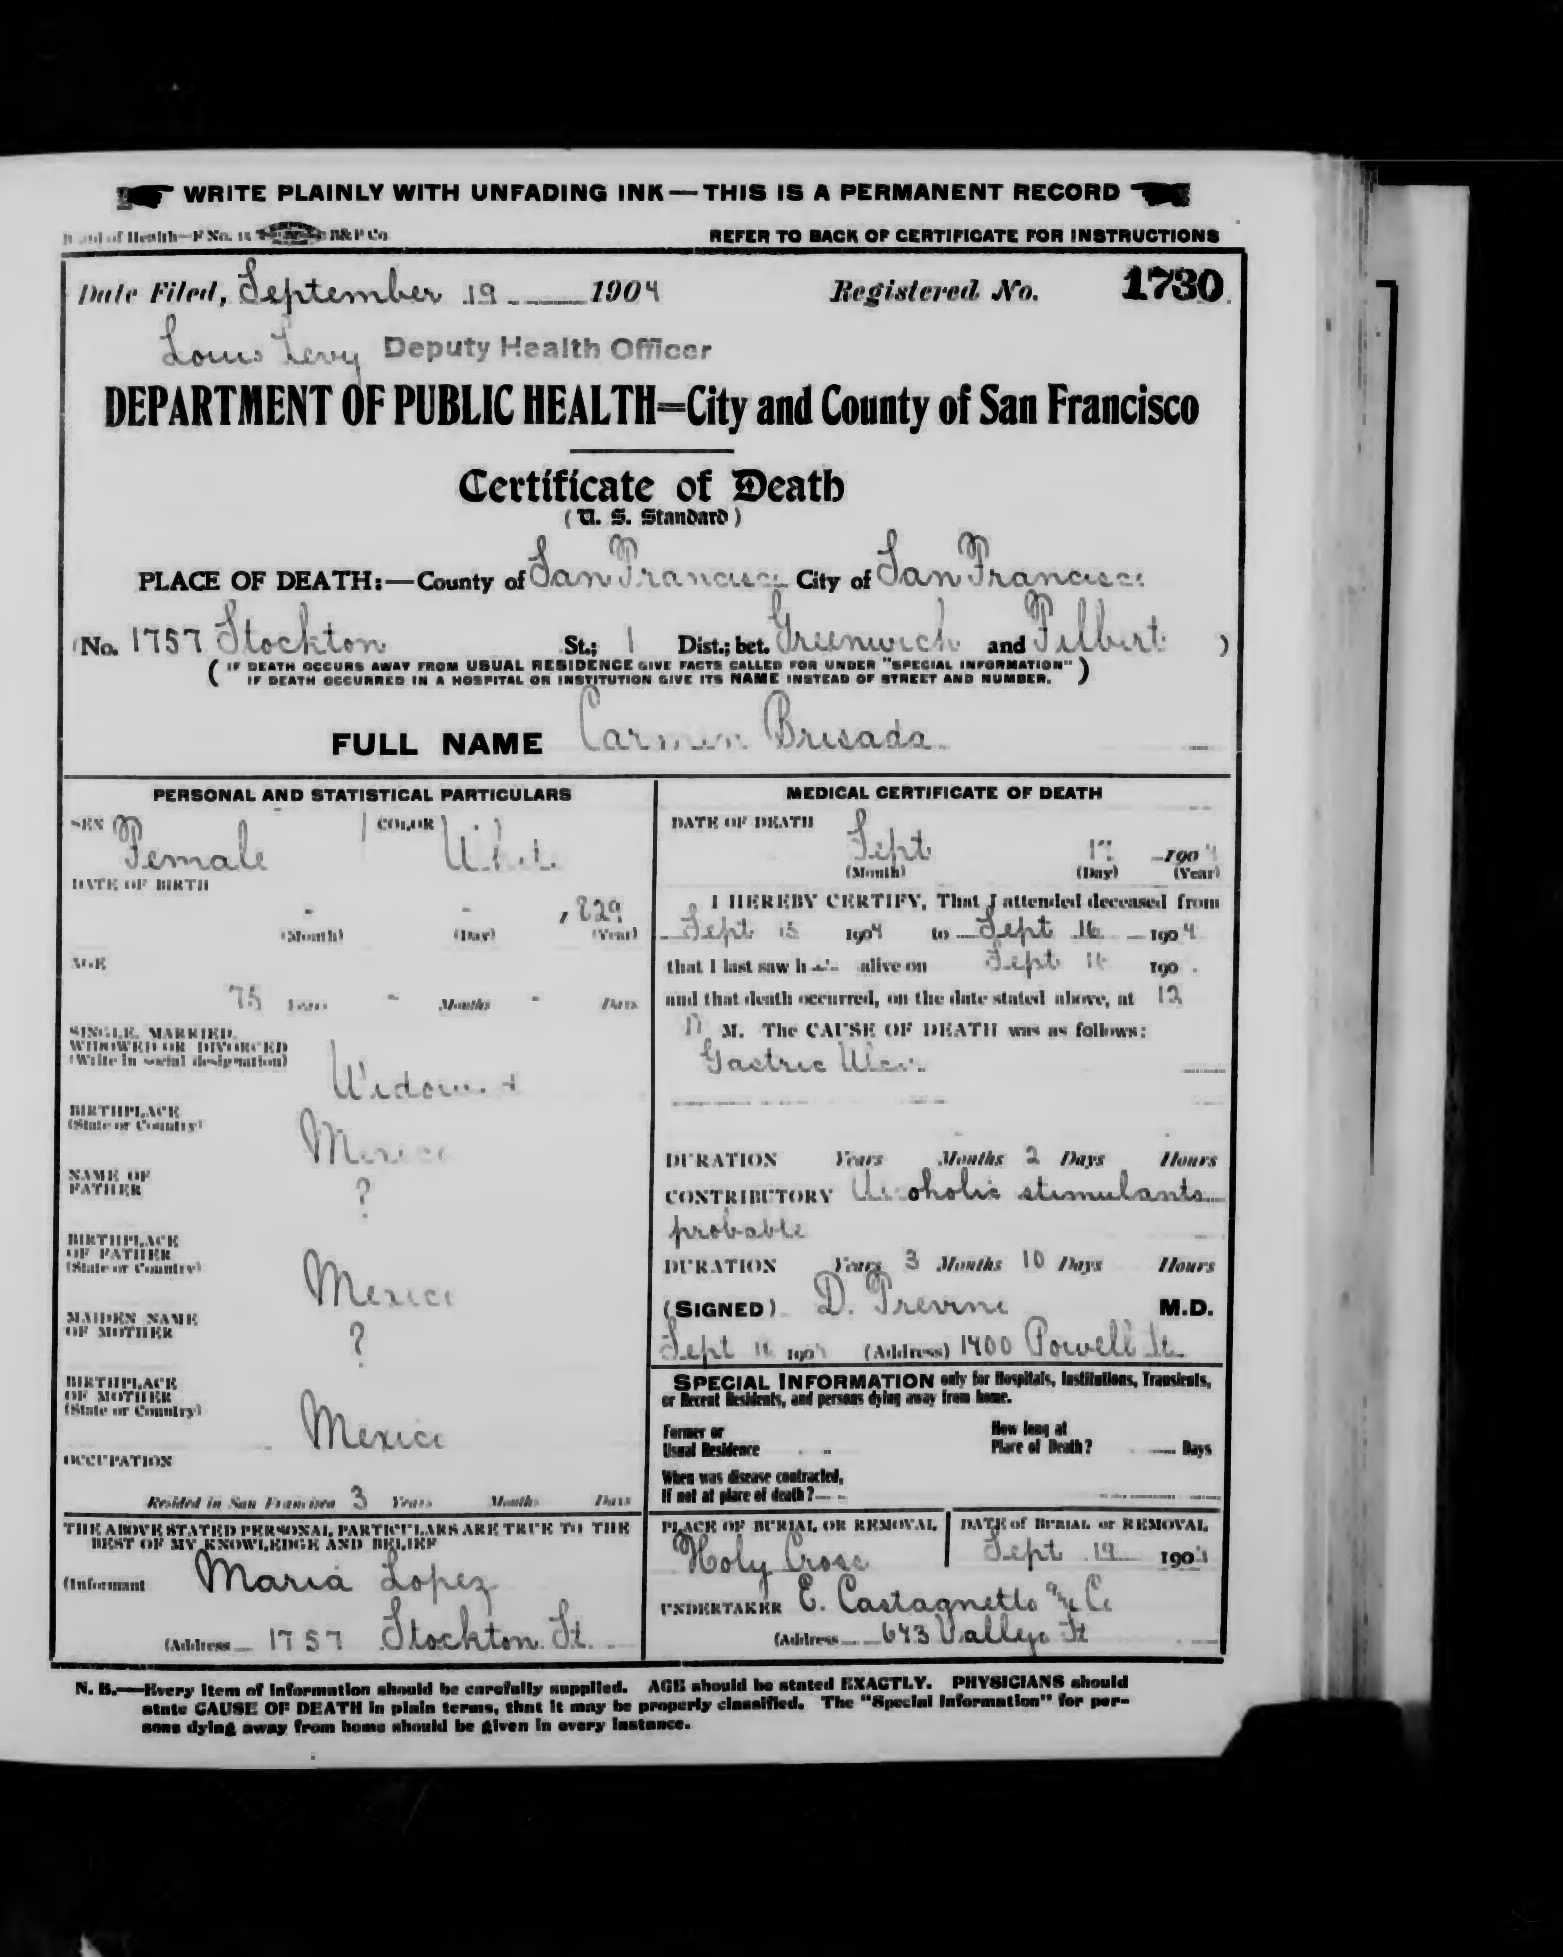 WRITE PLAINLY WITH UNFADING INK — THIS IS A PERMANENT RECORD
Board of Health—F No. 15 B&P Co
REFER TO BACK OF CERTIFICATE FOR INSTRUCTIONS
Date Filed, September 19 1904 Registered No. 1730
Louis Levy Deputy Health Officer
DEPARTMENT OF PUBLIC HEALTH=City and County of San Francisco
Certificate of Death
(U. S. Standard)
PLACE OF DEATH:—County of San Francisco City of San Francisco
(No. 1757 Stockton St.; 1 Dist.; bet. Greenwich and Filbert )
( IF DEATH OCCURS AWAY FROM USUAL RESIDENCE GIVE FACTS CALLED FOR UNDER "SPECIAL INFORMATION"
IF DEATH OCCURRED IN A HOSPITAL OR INSTITUTION GIVE ITS NAME INSTEAD OF STREET AND NUMBER. )
FULL NAME Carmen Brisada
PERSONAL AND STATISTICAL PARTICULARS
SEX Female COLOR White
DATE OF BIRTH
- - 1829
(Month) (Day) (Year)
AGE
75 Years - Months - Days
SINGLE, MARRIED,
WIDOWED OR DIVORCED
(Write in social designation)
Widowed
BIRTHPLACE
(State or Country)
Mexico
NAME OF
FATHER
?
BIRTHPLACE
OF FATHER
(State or Country)
Mexico
MAIDEN NAME
OF MOTHER
?
BIRTHPLACE
OF MOTHER
(State or Country)
Mexico
OCCUPATION
Resided in San Francisco 3 Years Months Days
THE ABOVE STATED PERSONAL PARTICULARS ARE TRUE TO THE
BEST OF MY KNOWLEDGE AND BELIEF
(Informant Maria Lopez
(Address 1757 Stockton St.
MEDICAL CERTIFICATE OF DEATH
DATE OF DEATH
Sept 17 1904
(Month) (Day) (Year)
I HEREBY CERTIFY, That I attended deceased from
Sept 15 1904 to Sept 16 1904
that I last saw h alive on Sept 16 190
and that death occurred, on the date stated above, at 12
M. The CAUSE OF DEATH was as follows:
Gastric Ulcer
DURATION Years Months 2 Days Hours
CONTRIBUTORY Alcoholic stimulants
probable
DURATION Years 3 Months 10 Days Hours
(SIGNED) D. M.D.
Sept 1904 (Address) 1400 Powell St.
SPECIAL INFORMATION only for Hospitals, Institutions, Transients,
or Recent Residents, and persons dying away from home.
Former or
Usual Residence
How long at
Place of Death? Days
When was disease contracted,
If not at place of death?
PLACE OF BURIAL OR REMOVAL
Holy Cross
DATE of BURIAL or REMOVAL
Sept 19 1904
UNDERTAKER E. Castagnetto & Co
(Address 643 Vallejo St
N. B.—Every item of information should be carefully supplied. AGE should be stated EXACTLY. PHYSICIANS should
state CAUSE OF DEATH in plain terms, that it may be properly classified. The "Special Information" for per-
sons dying away from home should be given in every instance.